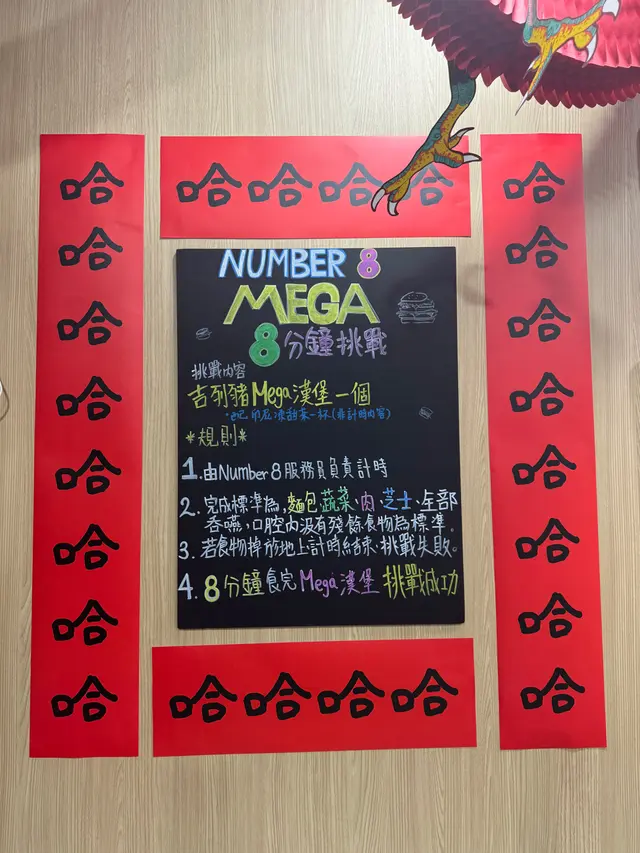 哈哈哈哈
哈
哈
哈
哈
哈
哈
哈
哈
NUMBER 8
MEGA
8分鐘挑戰
挑戰內容
吉列豬Mega漢堡一個
印尼凍甜茶一杯(非計時內容)
*規則*
1.由Number8服務員負責計時
2.完成標準為,麵包、蔬菜、肉、芝士、全部
吞嚥,口腔內沒有殘餘食物為標準。
3.若食物掉於地上計時結束,挑戰失敗。
4.8分鐘食完Mega漢堡 挑戰成功
哈
哈
哈
哈
哈
哈
哈
哈
哈哈哈哈